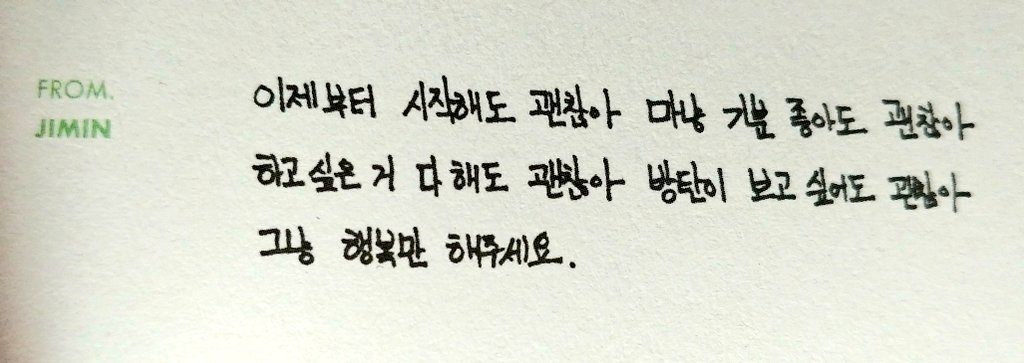 FROM.
JIMIN
이제부터 시작해도 괜찮아 마냥 기분 좋아도 괜찮아
하고 싶은 거 다 해도 괜찮아 방탄이 보고 싶어도 괜찮아
그냥 행복만 해주세요.